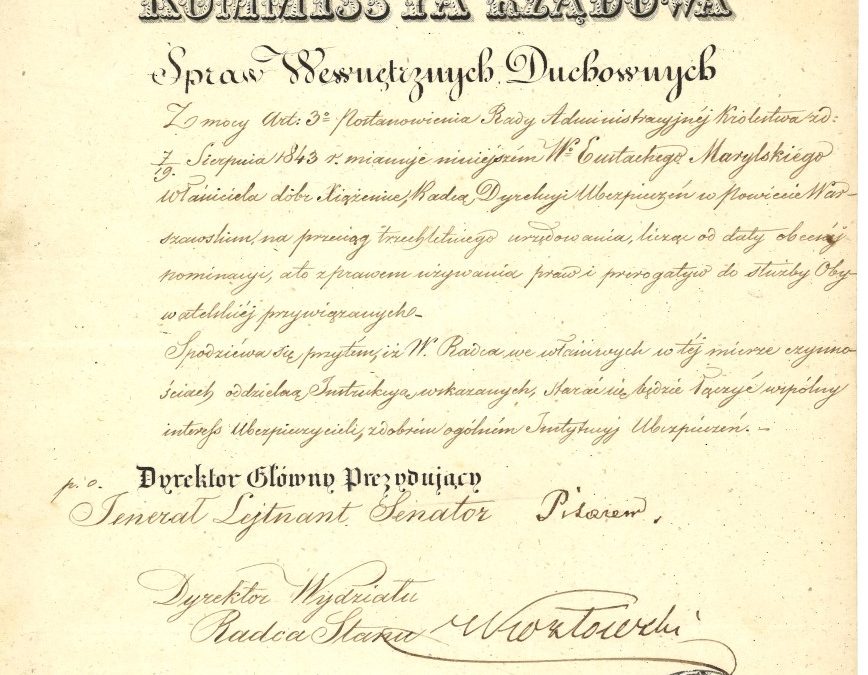 KOMMISSYA RZĄDOWA
Spraw Wewnętrznych Duchownych
Z mocy Art: 3º Postanowienia Rady Administracyjnéj Królestwa z d:
7/19. Sierpnia 1843 r. mianuje niniejszém Wº Eustachego Marylskiégo
właściciela dóbr Xiążenice, Radcą Dyrekcyi Ubezpieczeń w Powiecie War-
szawskim, na przeciąg trzechletniego urzędowania, licząc od daty obecnéj
nominacyi, a to z prawem używania praw i prerogatyw do służby Oby-
watelskiéj przywiązanych.-
Spodziéwa się przytem, iż W. Radca, we właściwych w téj mierze czynno-
ściach oddzielną Instrukcyą wskazanych, starać się będzie łączyć wspólny
interess Ubezpieczycieli, z dobrem ogólném Instytucyj Ubezpieczeń. -
p. o. Dyrektor Główny Prezydujący
Jenerał Lejtnant Senator Pisarew.
Dyrektor Wydziału
Radca Stanu